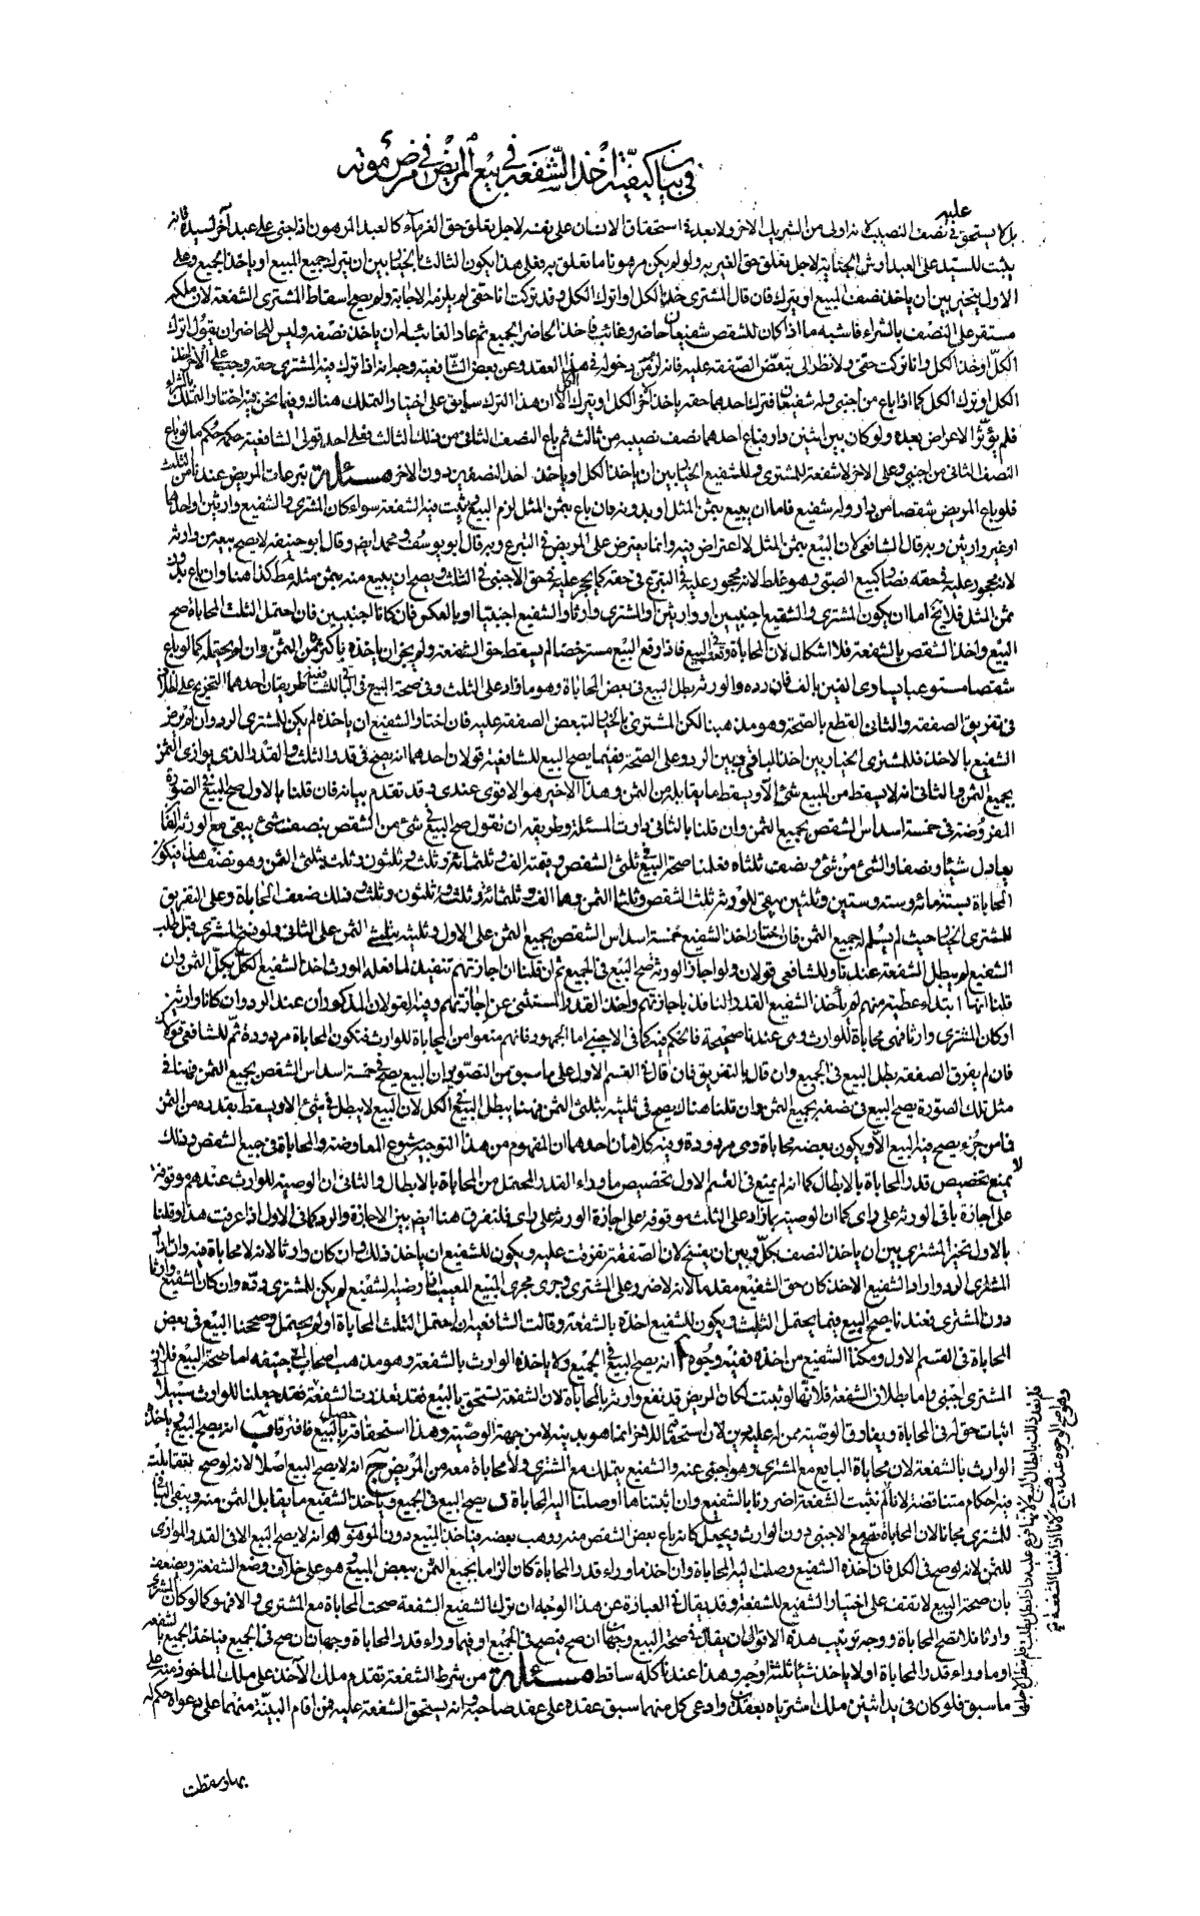 في بيان كيفية أخذ الشفعة في بيع المريض في مرض موته
عليه
بل كما يستحق في نصف النصيب كانه اولى من الشريك الاخر ولا بعد في استحقاق الانسان على نفسه لاجل تعلق حق الغرماء كالعبد المرهون اذا جنى على عبد آخر لسيده فانه
يثبت للسيد على العبد ارش الجناية لاجل تعلق حق الغير به ولو لم يكن مرهونا ما تعلق به فعلى هذا يكون الثالث بالخيار بين ان يترك جميع المبيع او ياخذ الجميع وعلى
الاول يتخير بين ان ياخذ نصف المبيع او يترك فان قال المشترى خذ الكل او اترك الكل وقد تركت انا حقى لم يلزمه الاجابة ولم يصح اسقاط المشترى الشفعة لان ملكه
مستقر على النصف بالشراء فاشبه ما اذا كان للشقص شفيعان حاضر وغائب فاخذ الحاضر الجميع ثم عاد الغائب له ان ياخذ نصفه وليس للحاضر ان يقول اترك
الكل او خذ الكل وانا تركت حقى ولا نظر الى تبعض الصفقة عليه فانه لزم من دخوله في هذا العقد وعن بعض الشافعية وجه انه اذا ترك فيه المشترى حقه وجب على الاخر اخذ
الكل او ترك الكل كما اذا باع من اجنبى وله شفيعان فترك احدهما حقه ياخذ الآخر الكل او يترك الكل الا ان هذا الترك سابق على اختيار التملك هناك وفيما نحن فيه اختار التملك بالشراء
فلم يؤثر الاعراض بعده ولو كان بين اثنين دار فباع احدهما نصف نصيبه من ثالث ثم باع النصف الثانى من ذلك الثالث فعلى احد قولى الشافعية حكمه حكم ما لو باع
النصف الثانى من اجنبى وعلى الاخر لا شفعة للمشترى وللشفيع الخيار بين ان ياخذ الكل او ياخذ احد النصفين دون الاخر مسئلة تبرعات المريض عندنا من الثلث
فلو باع المريض شقصا من دار وله شفيع فاما ان يبيع بثمن المثل او بدونه فان باع بثمن المثل لزم البيع وثبت فيه الشفعة سواء كان المشترى والشفيع وارثين او احدهما
او غير وارثين وبه قال الشافعى لان البيع بثمن المثل لا اعتراض فيه وانما يعترض على المريض في التبرع وبه قال ابو يوسف ومحمد ايض وقال ابو حنيفه لا يصح بيعه من وارثه
لانه محجور عليه في حقه فصار كبيع الصبى وهو غلط لانه محجور عليه في التبرع في حقه كما يحجر عليه في حق الاجنبى في الثلث ويصح ان يبيع منه بثمن مثله مط كذا هنا وان باع بدون
ثمن المثل فلا يخ اما ان يكون المشترى والشفيع اجنبيين او وارثين او المشترى وارثا والشفيع اجنبيا او بالعكس فان كانا اجنبيين فان احتمل الثلث المحاباة صح
البيع واخذ الشقص بالشفعة فلا اشكال لان المحاباة وقعت في البيع فاذا وقع البيع مسترخصا لم يسقط حق الشفعة ولم يجز ان ياخذه باكثر من الثمن وان لم يحتمله كما لو باع
شقصا مستوعبا يساوى الفين بالف فان رده الورثة بطل البيع في بعض المحاباة وهو ما زاد على الثلث وفى صحة البيع في الباقى للشافعية طريقان احدهما التخريج على الخلاف
فى تفريق الصفقة والثانى القطع بالصحة وهو مذهبنا لكن المشترى بالخيار لتبعض الصفقة عليه فان اختار الشفيع ان ياخذه لم يكن للمشترى الرد وان لم يرض
الشفيع بالاخذ فللمشترى الخيار بين اخذ الباقى وبين الرد وعلى الصحة ففيما يصح البيع للشافعية قولان احدهما انه يصح في قدر الثلث والقدر الذى يوازى الثمن
بجميع الثمن والثانى انه لا يسقط من المبيع شئ الا ويسقط ما يقابله من الثمن وهذا الاخير هو الاقوى عندى وقد تقدم بيانه فان قلنا بالاول صح البيع في الصورة
المفروضة في خمسة اسداس الشقص بجميع الثمن وان قلنا بالثانى دارت المسئلة وطريقه ان نقول صح البيع في شئ من الشقص بنصف شئ يبقى مع الورثة الفان
يعادل شيئا ونصفا والشئ من شئ ونصف ثلثاه فعلمنا صحة البيع في ثلثى الشقص وقيمته الف وثلثمائة وثلثة وثلثون وثلث بثلثى الثمن وهو نصف هذا فيكون
المحاباة بستمائة وستة وستين وثلثين يبقى للورثة ثلث الشقص وثلثا الثمن وهما الف وثلثمائة وثلثة وثلثون وثلث وذلك ضعف المحاباة وعلى التفريق
للمشترى الخيار حيث لم يسلم له جميع الثمن فان اختار اخذ الشفيع خمسة اسداس الشقص بجميع الثمن على الاول وثلثيه بثلثى الثمن على الثانى ولو فسخ المشترى قبل طلب
الشفيع لم يبطل الشفعة عندنا وللشافعى قولان ولو اجاز الورثة صح البيع في الجميع ثم ان قلنا ان اجازتهم تنفيذ لما فعله المورث اخذ الشفيع الكل بكل الثمن وان
قلنا انها ابتداء عطية منهم لم ياخذ الشفيع القدر النافذ باجازتهم واخذ القدر المستثنى عن اجازتهم وفيه القولان المذكوران عند الرد وان كانا وارثين
او كان المشترى وارثا فهى محاباة للوارث وهى عندنا صحيحة فالحكم فيه كما في الاجنبى اما الجمهور فانهم منعوا من المحاباة للوارث فتكون المحاباة مردودة ثم للشافعى قولان
فان لم يفرق الصفقة بطل البيع في الجميع وان قال بالتفريق فان قال في القسم الاول على ما سبق من التصوير ان البيع يصح في خمسة اسداس الشقص بجميع الثمن فهنا في
مثل تلك الصورة يصح البيع في نصفه بجميع الثمن وان قلنا هناك يصح في ثلثيه بثلثى الثمن فهنا يبطل البيع في الكل لان البيع لا يبطل في شئ الا ويسقط بقدره من الثمن
فما من جزء يصح فيه البيع الا ويكون بعضه محاباة وهى مردودة وفيه كلامان احدهما ان المفهوم من هذا التوجيه شيوع المعاوضة والمحاباة في جميع الشقص وذلك
لا يمنع تخصيص قدر المحاباة بالابطال كما انه لم يمنع في القسم الاول تخصيص ما وراء القدر المحتمل من المحاباة بالابطال والثانى ان الوصية للوارث عندهم موقوفة
على اجازة باقى الورثة على راى كما ان الوصية بما زاد على الثلث موقوفة على اجازة الورثة على راى فلنفرق هنا ايض بين الاجازة والرد كما في الاول اذا عرفت هذا وقلنا
بالاول يتخير المشترى بين ان ياخذ النصف بكل الثمن وبين ان يفسخ لان الصفقة تفرقت عليه ويكون للشفيع ان ياخذ ذلك وان كان وارثا لانه لا محاباة فيه وان اراد
المشترى الرد واراد الشفيع الاخذ كان حق الشفيع مقدما لانه لا ضرر على المشترى وجرى مجرى المبيع المعيب اذا رضيه الشفيع لم يكن للمشترى رده وان كان الشفيع وارثا
دون المشترى فعندنا يصح البيع فيما يحتمل الثلث ويكون للشفيع اخذه بالشفعة وقالت الشافعية ان احتمل الثلث المحاباة او لم يحتمل وصححنا البيع في بعض
المحاباة في القسم الاول ومكنا الشفيع من اخذه ففيه وجوه أ انه يصح البيع في الجميع ولا ياخذه الوارث بالشفعة وهو مذهب اصحاب ابى حنيفة اما صحة البيع فلان
المشترى اجنبى واما بطلان الشفعة فلانها لو ثبتت لكان المريض قد نفع وارثه بالمحاباة لان الشفعة تستحق بالبيع فقد تعذرت الشفعة فقد جعلنا للوارث سبيلا الى
اثبات حق له في المحاباة ويفارق الوصية بمن له عليه دين لان استحقاقه للاخذ انما هو بدينه لا من جهة الوصية وهذا استحقاقه حصل بالبيع فافترقا ب انه يصح البيع وياخذه
الوارث بالشفعة لان محاباة البايع مع المشترى وهو اجنبى عنه والشفيع يتملك مع المشترى ولا محاباة معه من المريض ج انه لا يصح البيع اصلا لانه لو صح لتقابلت
فيه احكام متناقضة لانا ان لم نثبت الشفعة اضررنا بالشفيع وان اثبتناها اوصلنا اليه المحاباة د يصح البيع في الجميع وياخذ الشفيع ما يقابل الثمن منه ويبقى الباقى
للمشترى مجانا لان المحاباة تصح مع الاجنبى دون الوارث ويجعل كانه باع بعض الشقص منه ووهب بعضه فياخذ المبيع دون الموهوب ه انه لا يصح البيع الا في القدر الموازى
للثمن لانه لو صح في الكل فان اخذه الشفيع وصلت اليه المحاباة وان اخذ ما وراء قدر المحاباة كان الزاما بجميع الثمن ببعض المبيع وهو على خلاف وضع الشفعة ويضعف
بان صحة البيع لا تقف على اختيار الشفيع للشفعة وقد يقال في العبارة عن هذا الوجه ان ترك الشفيع الشفعة صحت المحاباة مع المشترى والا فهو كما لو كان المشترى
وارثا فلا تصح المحاباة ووجه ترتيب هذه الاقوال ان يقال في صحة البيع وجهان ان صح فيصح في الجميع او فيما وراء قدر المحاباة وجهان ان صح في الجميع فياخذ الجميع بالشفعة
او ما وراء قدر المحاباة او لا ياخذ شيئا ثلثة اوجه وهذا عندنا كله ساقط مسئلة من شرط الشفعة تقدم ملك الآخذ على ملك الماخوذ منه على
ما سبق فلو كان في يد اثنين ملك اشترياه بعقدين وادعى كل منهما سبق عقده على عقد صاحبه وانه يستحق الشفعة عليه فمن اقام البينة منهما على دعواه حكم له
بها وسقطت